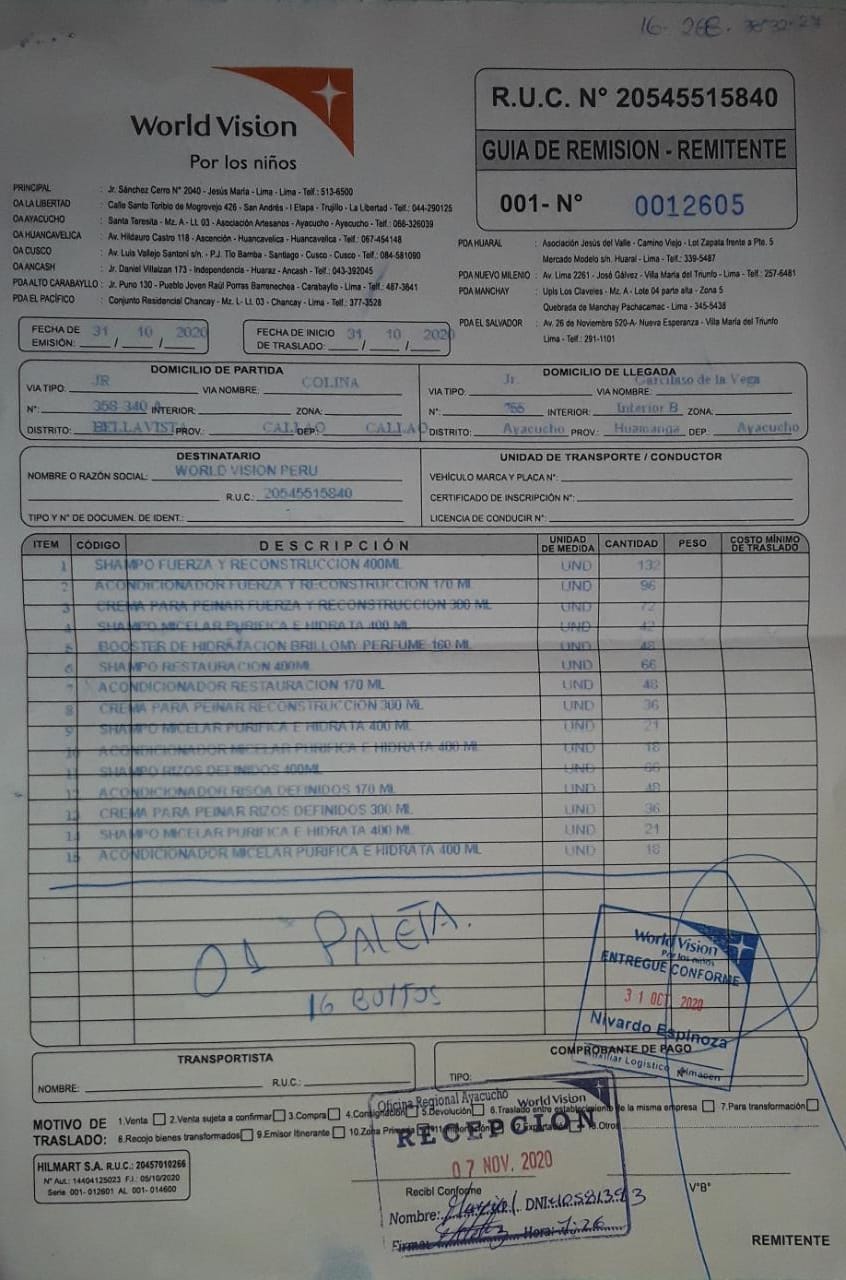 16- 268.
World Vision
Por los niños
R.U.C. N° 20545515840
GUIA DE REMISION - REMITENTE
001- N° 0012605
PRINCIPAL : Jr. Sánchez Cerro N° 2040 - Jesús María - Lima - Lima - Telf.: 513-6500
OA LA LIBERTAD : Calle Santo Toribio de Mogrovejo 426 - San Andrés - I Etapa - Trujillo - La Libertad - Telf.: 044-290125
OA AYACUCHO : Santa Teresita - Mz. A - Lt. 03 - Asociación Artesanos - Ayacucho - Ayacucho - Telf.: 066-326039
OA HUANCAVELICA : Av. Hildauro Castro 118 - Ascención - Huancavelica - Huancavelica - Telf.: 067-454148
OA CUSCO : Av. Luis Vallejo Santoni s/n. - P.J. Tío Bamba - Santiago - Cusco - Cusco - Telf.: 084-581090
OA ANCASH : Jr. Daniel Villaizan 173 - Independencia - Huaraz - Ancash - Telf.: 043-392045
PDA ALTO CARABAYLLO : Jr. Puno 130 - Pueblo Joven Raúl Porras Barrenechea - Carabayllo - Lima - Telf.: 487-3641
PDA EL PACÍFICO : Conjunto Residencial Chancay - Mz. L- Lt. 03 - Chancay - Lima - Telf.: 377-3528
PDA HUARAL : Asociación Jesús del Valle - Camino Viejo - Lot Zapata frente a Pte. 5
Mercado Modelo s/n. Huaral - Lima - Telf.: 339-5487
PDA NUEVO MILENIO : Av. Lima 2261 - José Gálvez - Villa María del Triunfo - Lima - Telf.: 257-6481
PDA MANCHAY : Upis Los Claveles - Mz. A - Lote 04 parte alta - Zona 5
Quebrada de Manchay Pachacamac - Lima - 345-5438
PDA EL SALVADOR : Av. 26 de Noviembre 520-A- Nueva Esperanza - Villa María del Triunfo
Lima - Telf.: 291-1101
FECHA DE EMISIÓN: 31 / 10 / 2020
FECHA DE INICIO DE TRASLADO: 31 / 10 / 2020
DOMICILIO DE PARTIDA
VIA TIPO: JR VIA NOMBRE: COLINA
N°: 358 340 A INTERIOR: ZONA:
DISTRITO: BELLAVISTA PROV.: CALLAO DEP.: CALLAO
DOMICILIO DE LLEGADA
VIA TIPO: Jr. VIA NOMBRE: Garcilaso de la Vega
N°: 755 INTERIOR: Interior B ZONA:
DISTRITO: Ayacucho PROV.: Huamanga DEP. Ayacucho
DESTINATARIO
NOMBRE O RAZÓN SOCIAL: WORLD VISION PERU
R.U.C.: 20545515840
TIPO Y N° DE DOCUMEN. DE IDENT.:
UNIDAD DE TRANSPORTE / CONDUCTOR
VEHÍCULO MARCA Y PLACA N°:
CERTIFICADO DE INSCRIPCIÓN N°:
LICENCIA DE CONDUCIR N°:
ITEM CÓDIGO DESCRIPCIÓN UNIDAD DE MEDIDA CANTIDAD PESO COSTO MÍNIMO DE TRASLADO
1 SHAMPO FUERZA Y RECONSTRUCCION 400ML UND 132
2 ACONDICIONADOR FUERZA Y RECONSTRUCCION 170 ML UND 96
3 CREMA PARA PEINAR FUERZA Y RECONSTRUCCION 300 ML UND 72
4 SHAMPO MICELAR PURIFICA E HIDRATA 400 ML UND 42
5 BOOSTER DE HIDRATACION BRILLOMY PERFUME 160 ML UND 48
6 SHAMPO RESTAURACION 400ML UND 66
7 ACONDICIONADOR RESTAURACION 170 ML UND 48
8 CREMA PARA PEINAR RECONSTRUCCION 300 ML UND 36
9 SHAMPO MICELAR PURIFICA E HIDRATA 400 ML UND 21
10 ACONDICIONADOR MICELAR PURIFICA E HIDRATA 400 ML UND 18
11 SHAMPO RIZOS DEFINIDOS 400ML UND 66
12 ACONDICIONADOR RISOA DEFINIDOS 170 ML UND 48
13 CREMA PARA PEINAR RIZOS DEFINIDOS 300 ML UND 36
14 SHAMPO MICELAR PURIFICA E HIDRATA 400 ML UND 21
15 ACONDICIONADOR MICELAR PURIFICA E HIDRATA 400 ML UND 18
01 PALETA.
16 BULTOS
World Vision
Por los niños
ENTREGUE CONFORME
31 OCT 2020
Nivardo Espinoza
Auxiliar Logístico Almacen
TRANSPORTISTA
NOMBRE: R.U.C.:
COMPROBANTE DE PAGO
TIPO:
MOTIVO DE TRASLADO: 1.Venta 2.Venta sujeta a confirmar 3.Compra 4.Consignación 5.Devolución 6.Traslado entre establecimiento de la misma empresa 7.Para transformación
8.Recojo bienes transformados 9.Emisor Itinerante 10.Zona Primaria 11.Importación 12.Exportación 13.Otros
Oficina Regional Ayacucho World Vision
RECEPCION
07 NOV. 2020
Recibi Conforme
Nombre: DNI:
Firma: Hora: 7:26
HILMART S.A. R.U.C.: 20457010266
N° Aut.: 14404125023 F.I.: 05/10/2020
Serie 001- 012601 AL 001- 014600
V°B°
REMITENTE